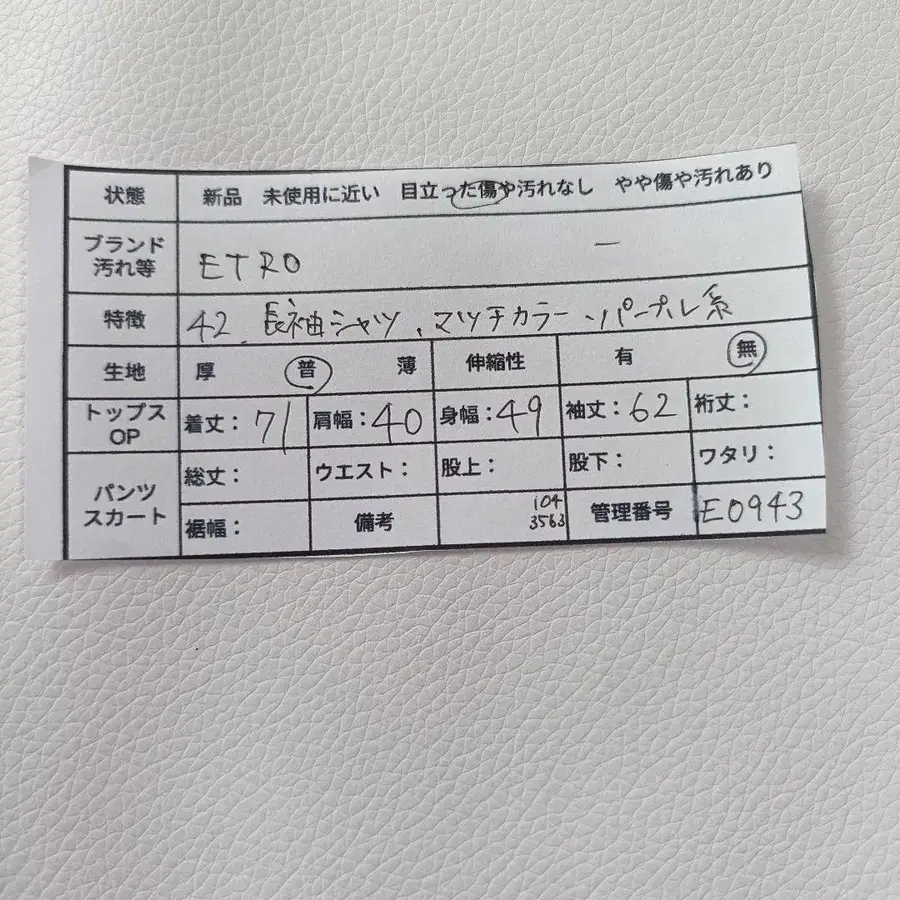 状態 新品 未使用に近い 目立った傷や汚れなし やや傷や汚れあり
ブランド
汚れ等 ETRO ー
特徴 42、長袖シャツ、マツチカラー、パープル系
生地 厚 普 薄 伸縮性 有 無
トップス
OP 着丈：71 肩幅：40 身幅：49 袖丈：62 裄丈：
パンツ
スカート 総丈： ウエスト： 股上： 股下： ワタリ：
裾幅： 備考 104
3563 管理番号 E0943